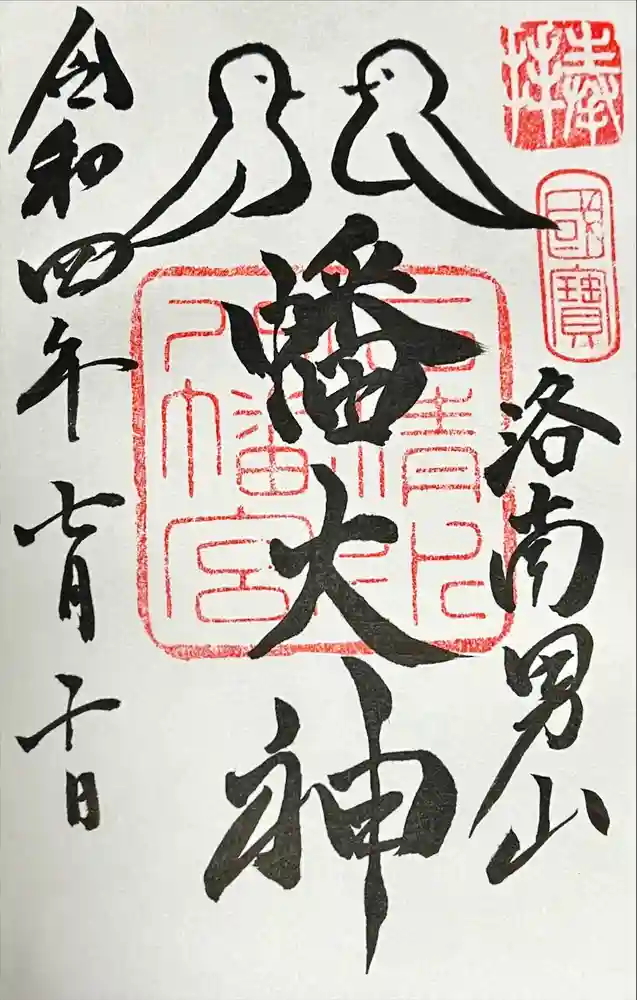 奉拝
國寶
洛南男山
八幡大神
八幡宮
令和四年七月十日